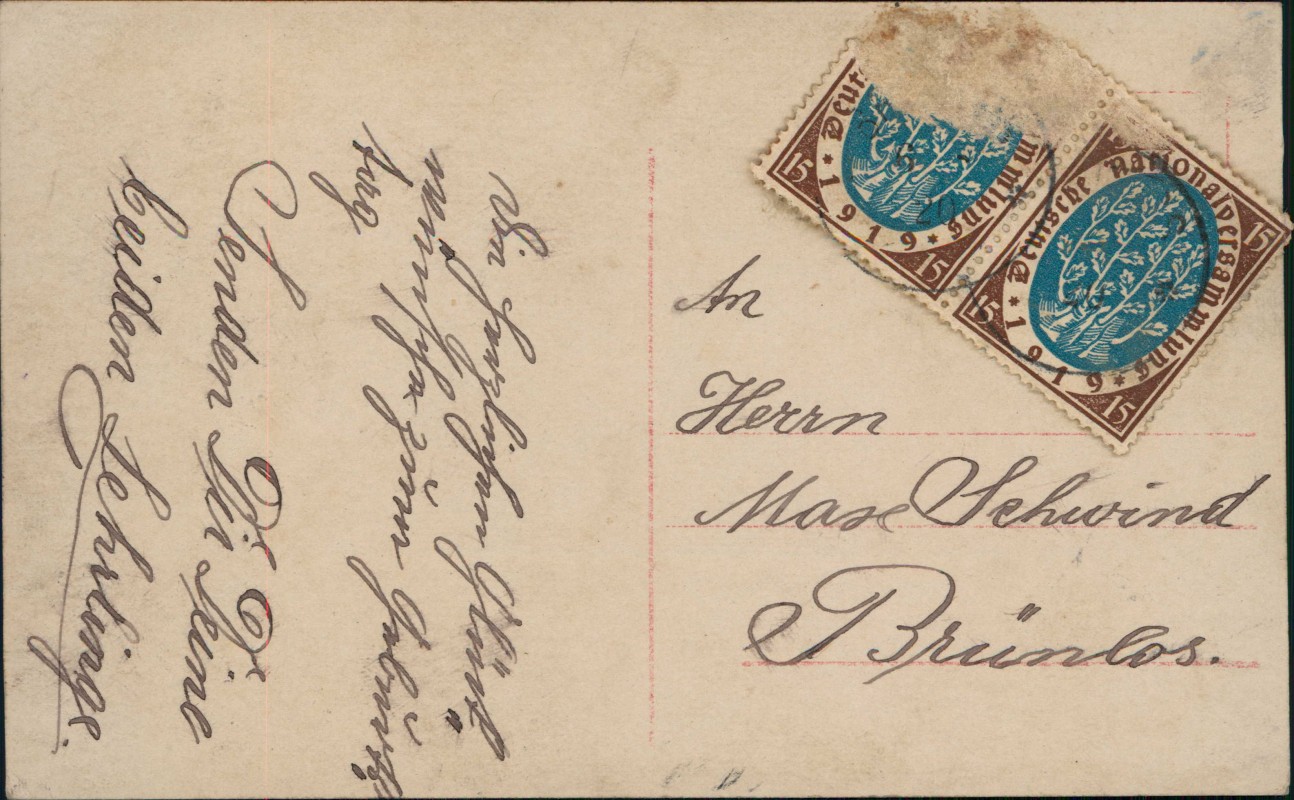 Die herzlichsten Glück
wünsche zum Geburts
tag
Senden Dir Deine
beiden Lehrlinge.
An
Herrn
Max Schwind
Brünlos.
Deutsche Nationalversammlung
* 1919 *
15 15
Deutsche Nationalversammlung
* 1919 *
15 15 15